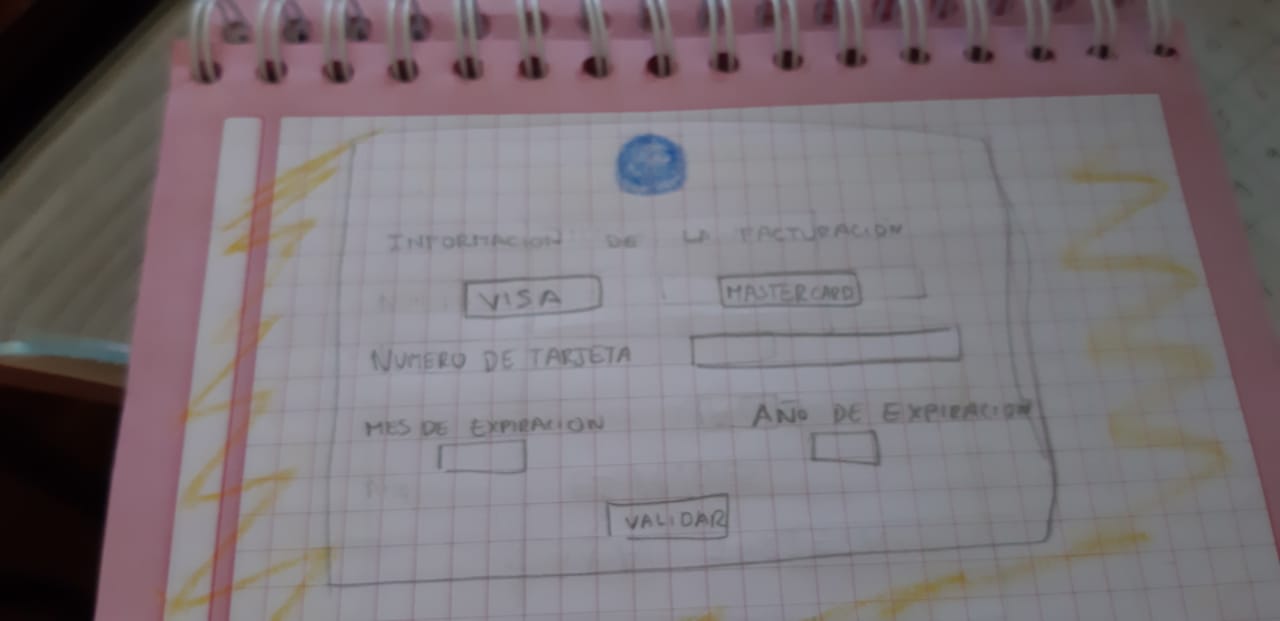 INFORMACION DE LA FACTURACION
VISA MASTERCARD
NUMERO DE TARJETA
MES DE EXPIRACION AÑO DE EXPIRACION
VALIDAR